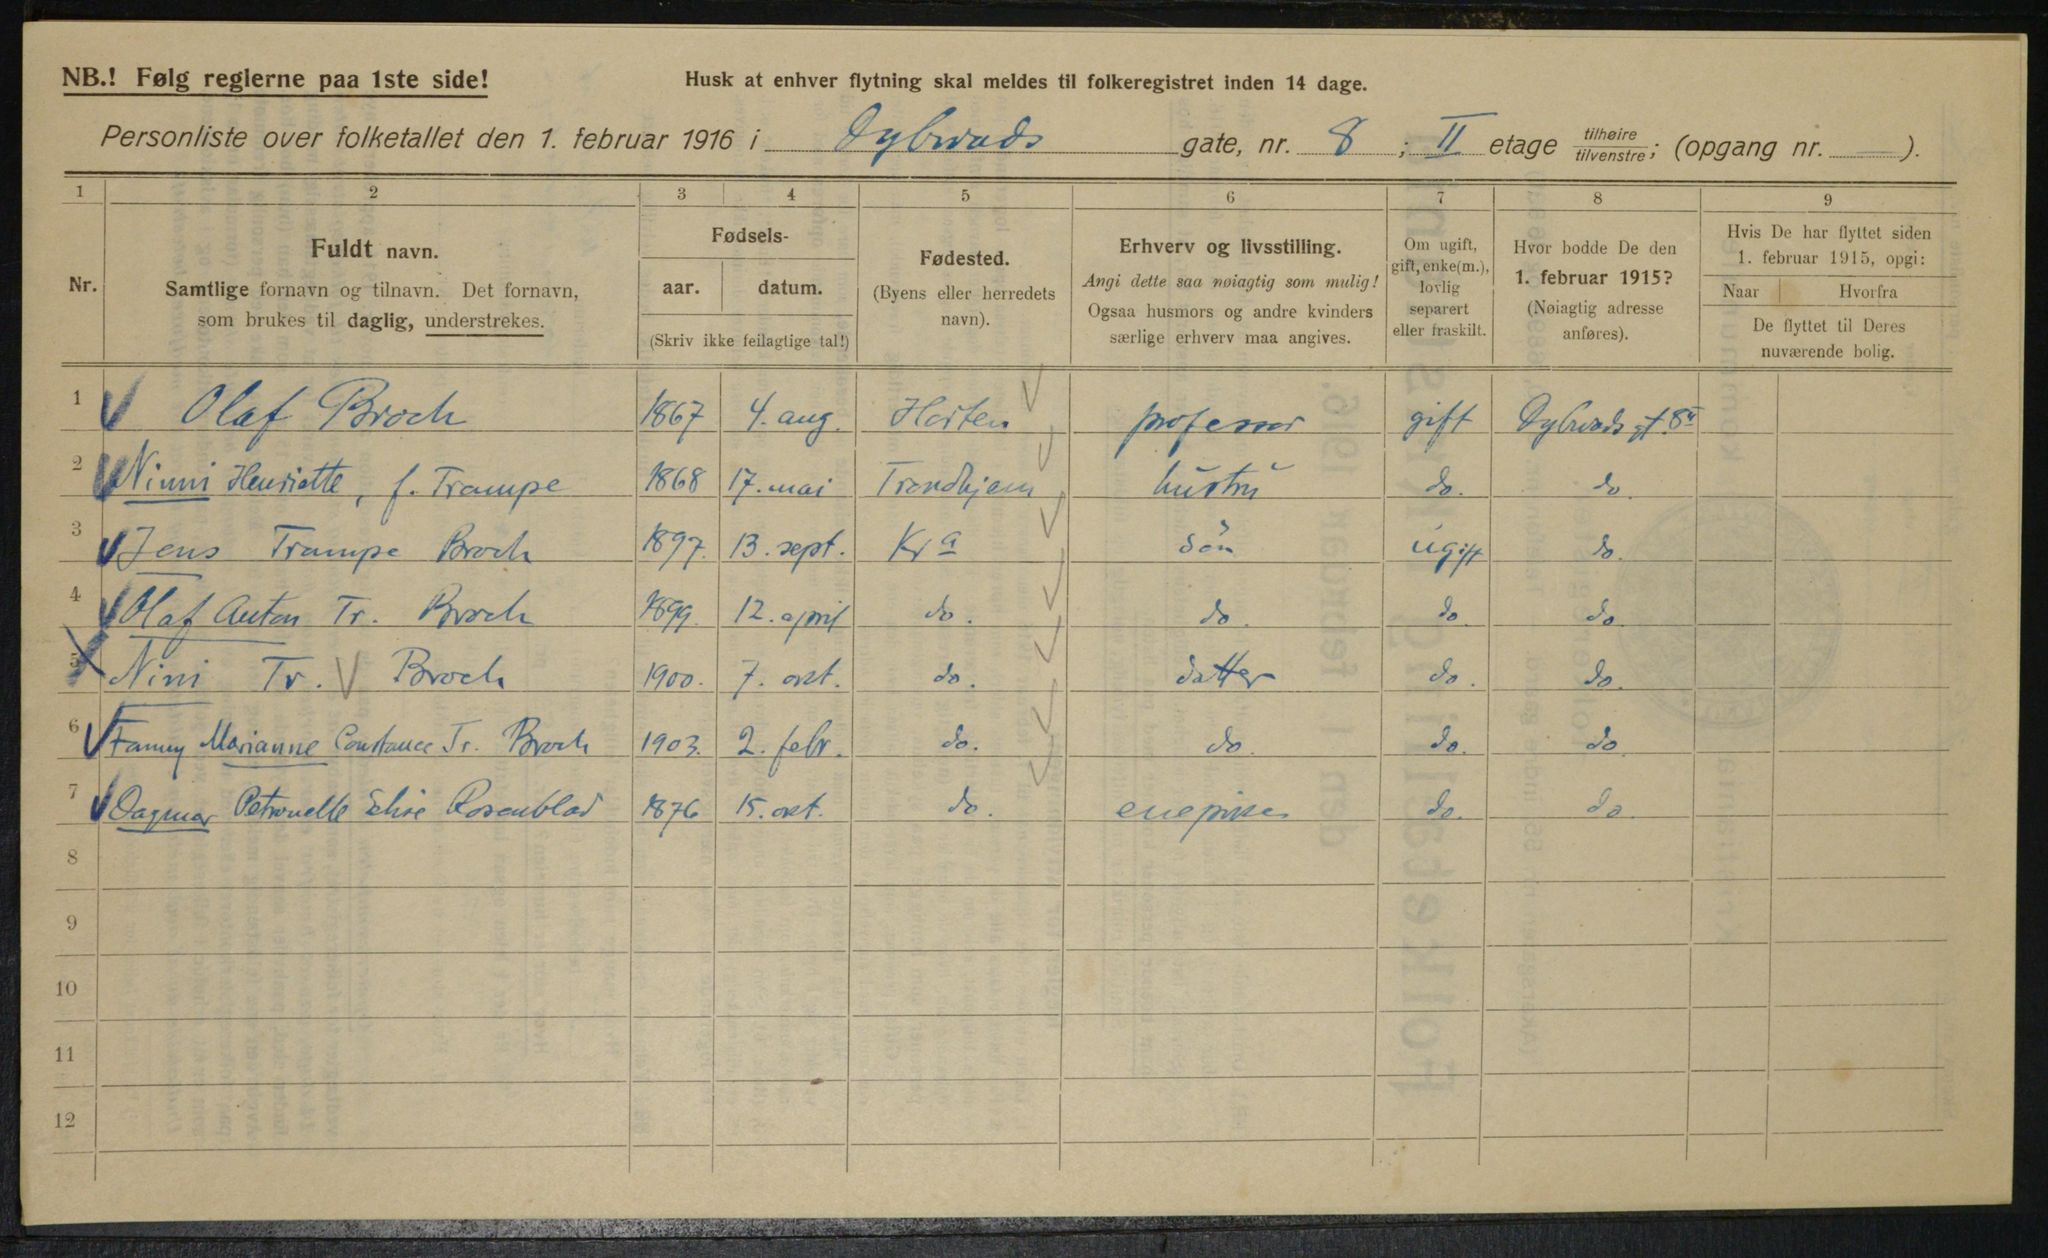 NB.! Følg reglerne paa 1ste side!
Husk at enhver flytning skal meldes til folkeregistret inden 14 dage.
Personliste over folketallet den 1. februar 1916 i Dybwads gate, nr. 8 ; II etage tilhøire tilvenstre; (opgang nr. — ).
1 2 3 4 5 6 7 8 9
Nr.
Fuldt navn.
Samtlige fornavn og tilnavn. Det fornavn,
som brukes til daglig, understrekes.
Fødsels-
aar. datum.
(Skriv ikke feilagtige tal!)
Fødested.
(Byens eller herredets
navn).
Erhverv og livsstilling.
Angi dette saa nøiagtig som mulig!
Ogsaa husmors og andre kvinders
særlige erhverv maa angives.
Om ugift,
gift, enke(m.),
lovlig
separert
eller fraskilt.
Hvor bodde De den
1. februar 1915?
(Nøiagtig adresse
anføres).
Hvis De har flyttet siden
1. februar 1915, opgi:
Naar Hvorfra
De flyttet til Deres
nuværende bolig.
1 Olaf Broch 1867 4. aug. Horten professor gift Dybwads gt. 8 II
2 Ninni Henriette, f. Trampe 1868 17. mai Trondhjem hustru do. do.
3 Jens Trampe Broch 1897. 13. sept. Kra søn ugift do.
4 Olaf Anton Tr. Broch 1899. 12. april do. do. do. do.
5 Nini Tr. Broch 1900. 7. okt. do. datter do. do.
6 Fanny Marianne Constance Tr. Broch 1903. 2. febr. do. do. do. do.
7 Dagmar Petronelle Elise Rosenblad 1876 15. okt. do. enepike do. do.
8
9
10
11
12